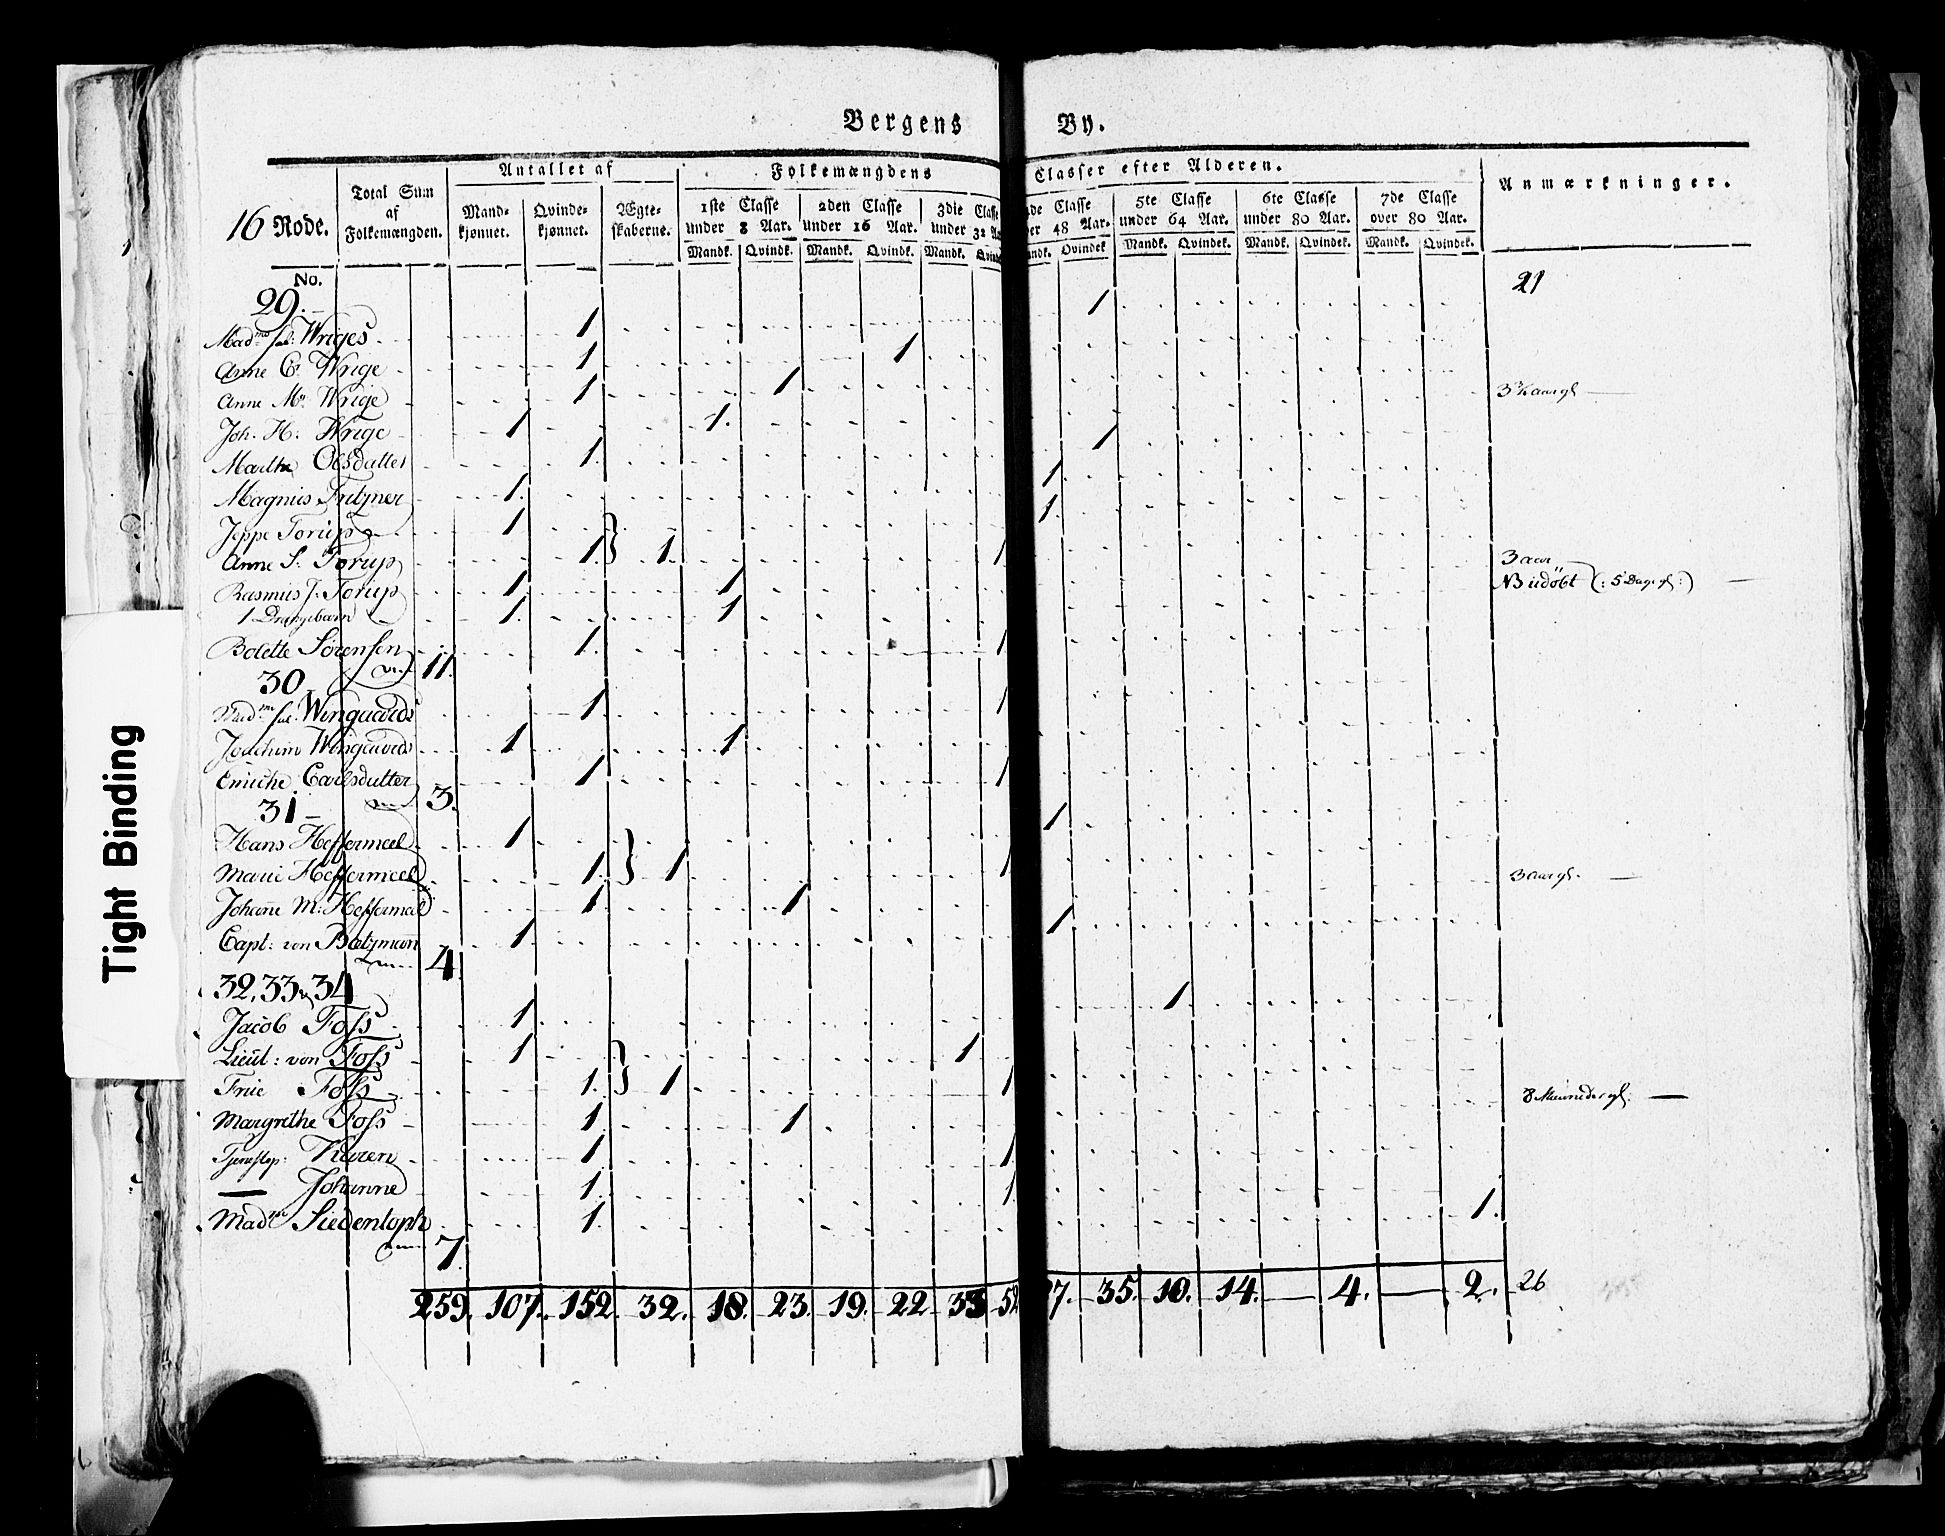 Bergens By.
16 Rode.
Total Sum af Folkemængden.
Antallet af
Mand-kjønnet. Qvinde-kjønnet. Ægte-skaberne.
Folkemængdens Classer efter Alderen.
1ste Classe under 8 Aar. 2den Classe under 16 Aar. 3die Classe under 32 5te Classe under 64 Aar. 6te Classe under 80 Aar. 7de Classe over 80 Aar.
Classe 48 Aar.
Mandk. Qvindk. Mandk. Qvindk. Mandk. Qvindk Mandk. Qvindk. Mandk. Qvindk. Mandk. Qvindk.
Anmærkninger.
No.
29. 21
Madme sal: Wriges 1 1
Anne C. Wrige 1 1
Anne M. Wrige 1 1
Joh. H: Wrige 1 1. 3½ aargl
Marthe Olsdatter 1 1
Magnus Fritzner 1. 1
Jeppe Torup 1 1
Anne S. Torup 1. } 1. 1
Rasmus J. Torup 1 1 3 aar
1 Drængebarn 1. 1 NB udøbt (: 5 Dage gl:)
Bolette Sørensen 1. 1
11.
30.
Madme sal. Wingaards 1 1
Joachim Wingaards 1 1
Emiche Carlsdatter 1 1
3.
31
Hans Heffermeel 1 1
Marie Heffermeel 1 } 1 1
Johane M: Heffermeel 1 1 3 aar gl.
Capt: von Botzmann 1 1
4.
32, 33 & 34
Jacob Foss 1 1
Lieut: von Foss 1 1
Frue Foss 1. } 1 1
Margrethe Foss 1 1 8 Maaneder gl.
Tjenestep: Karen 1 1
— Johanne 1. 1
Madme Siedentoph 1. 1.
7.
259. 107. 152. 32. 18. 23. 19. 22 33 52 7. 35. 10. 14. — 4. — 2. 26
Tight Binding